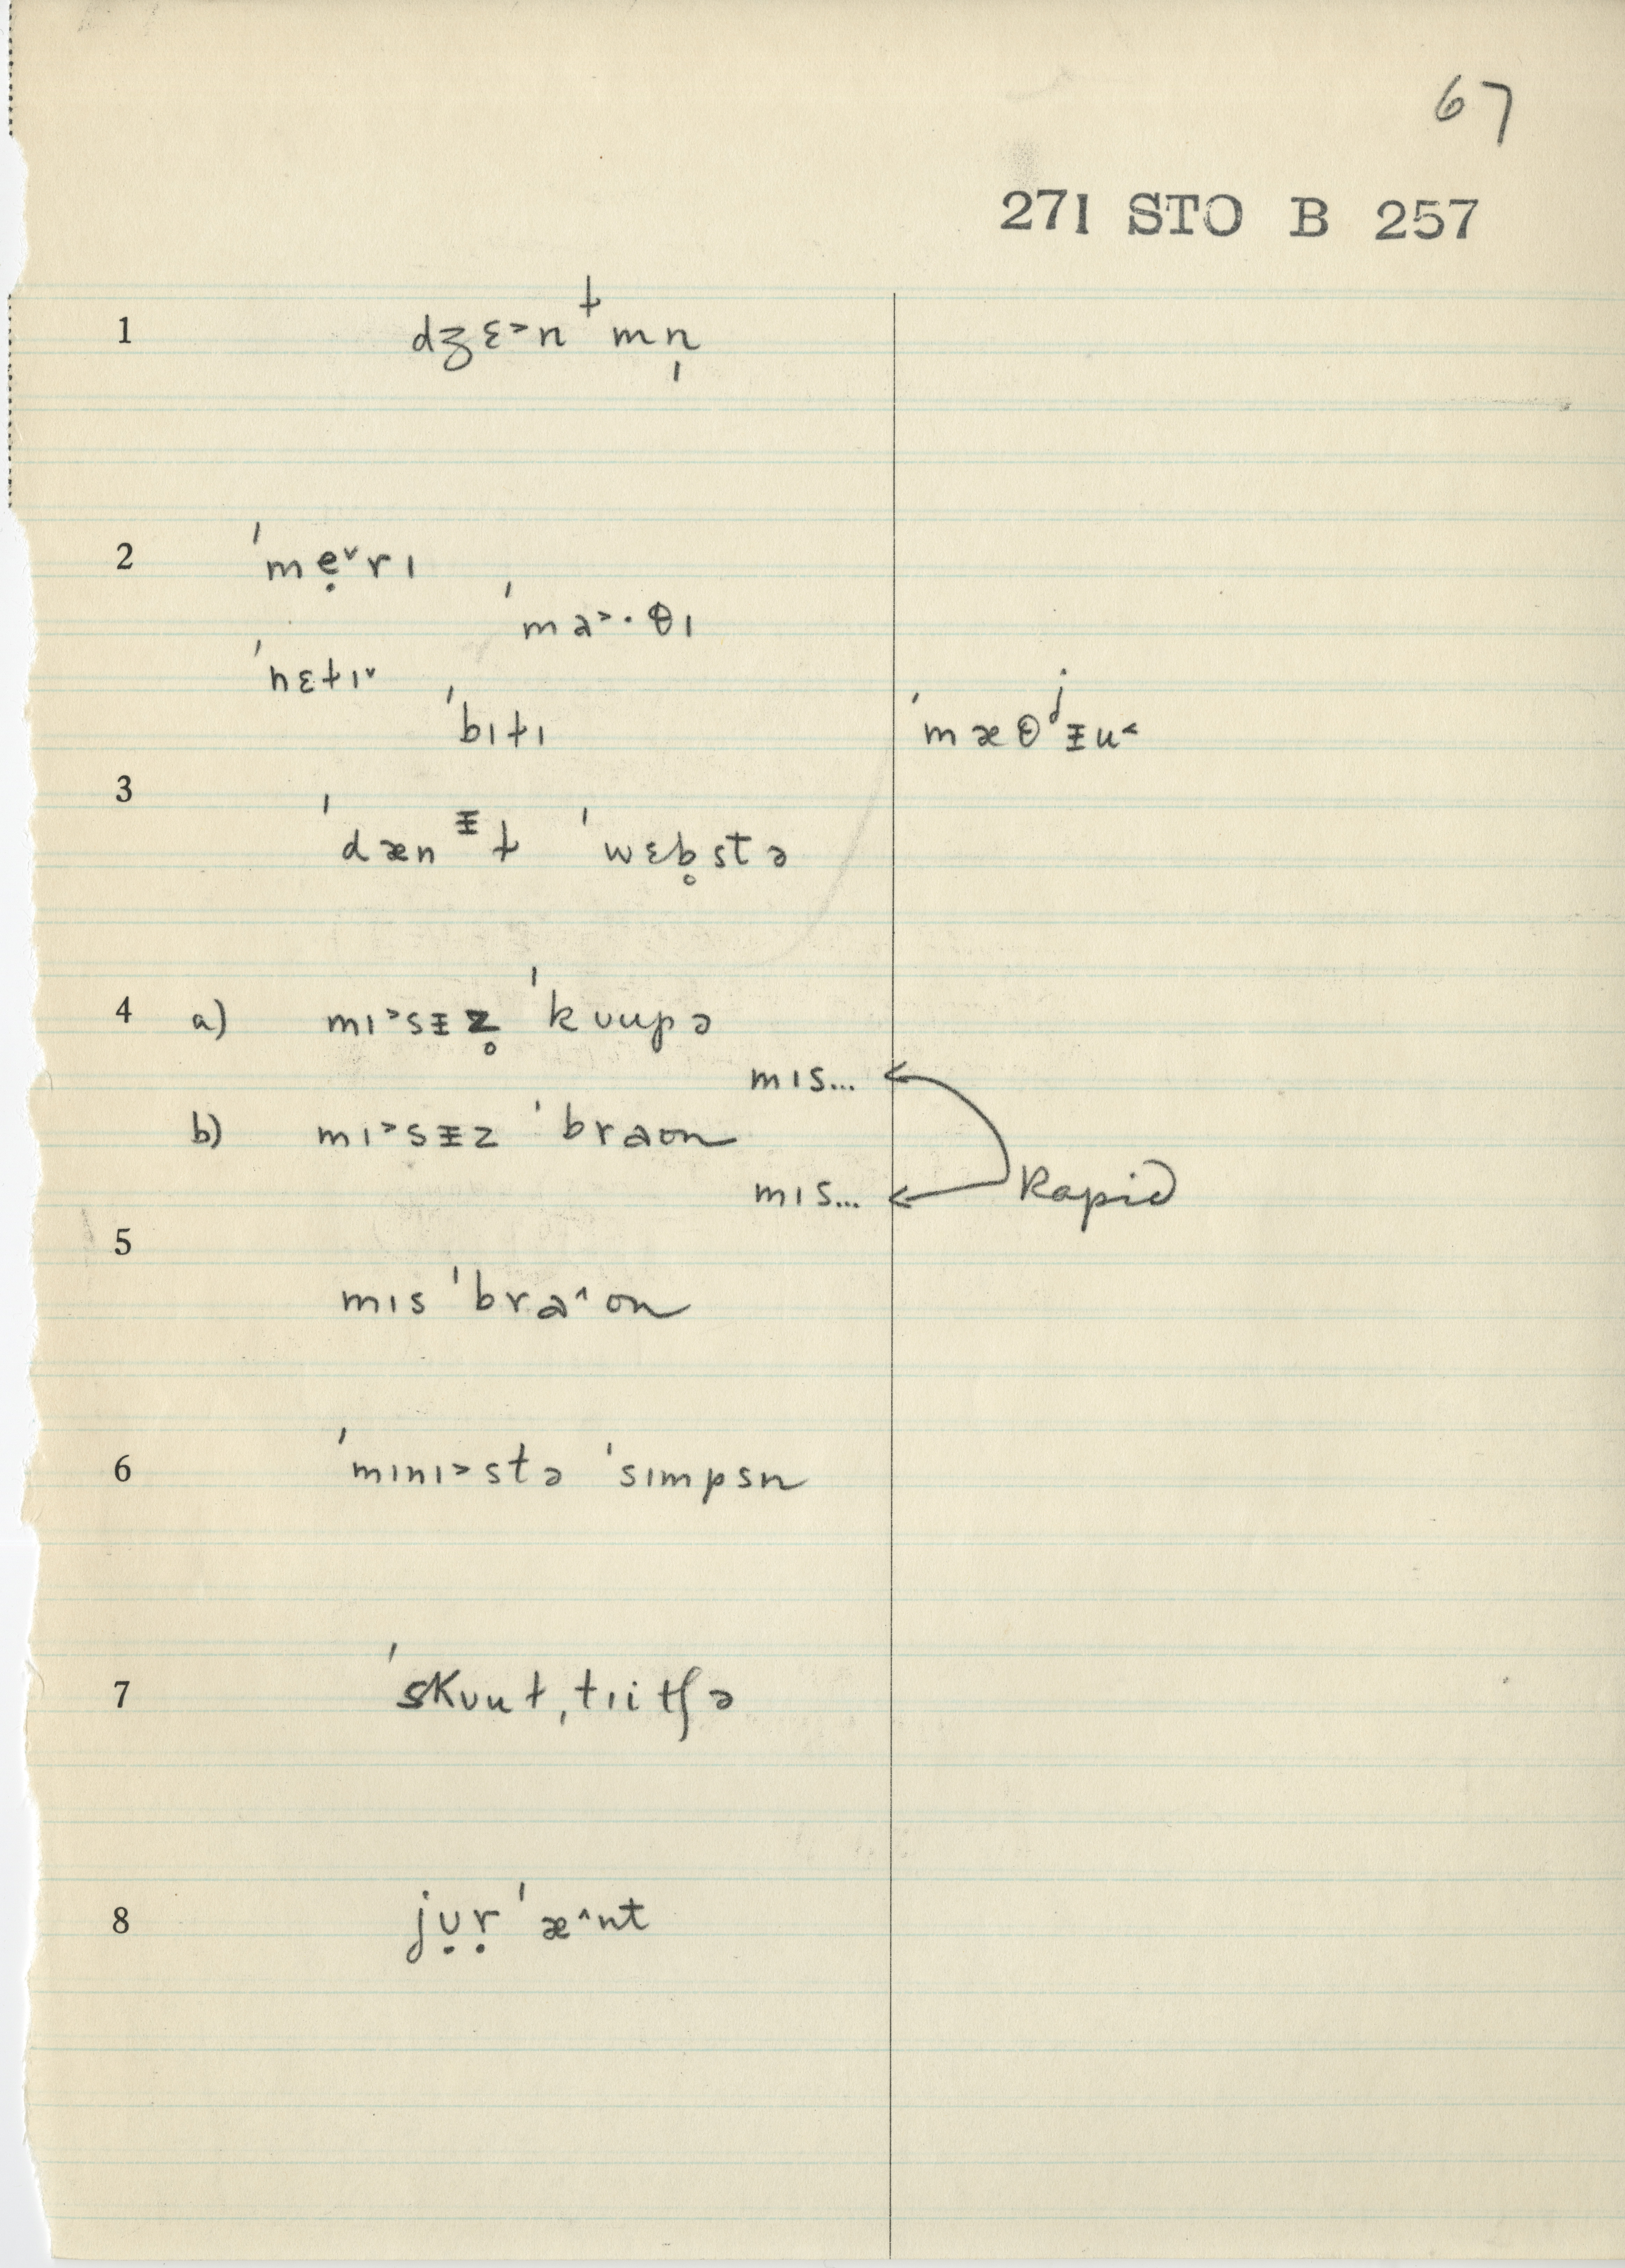 67
271 STO B 257
1 dʒɛ˃nᵗ̬mn̩
2 ˈmẹ˅rɪ
ˈma˃·θɪ
ˈnɛt̬ɪ˅
ˈbɪt̬ɪ
ˈmæθʲᵻu˂
3 ˈdænᵻɫ ˈwɛb̥stə
4 a) mɪ˃sᵻz̥ ˈkʊupə
mɪs...
b) mɪ˃sᵻz ˈbraʊn
mɪs... Rapid
5 mɪs ˈbra˄ʊn
6 ˈmɪnɪ˃stə ˈsɪmpsn
7 ˈskʊuɫˌtɪitʃə
8 jʊ̣ṛ ˈæ˄nt